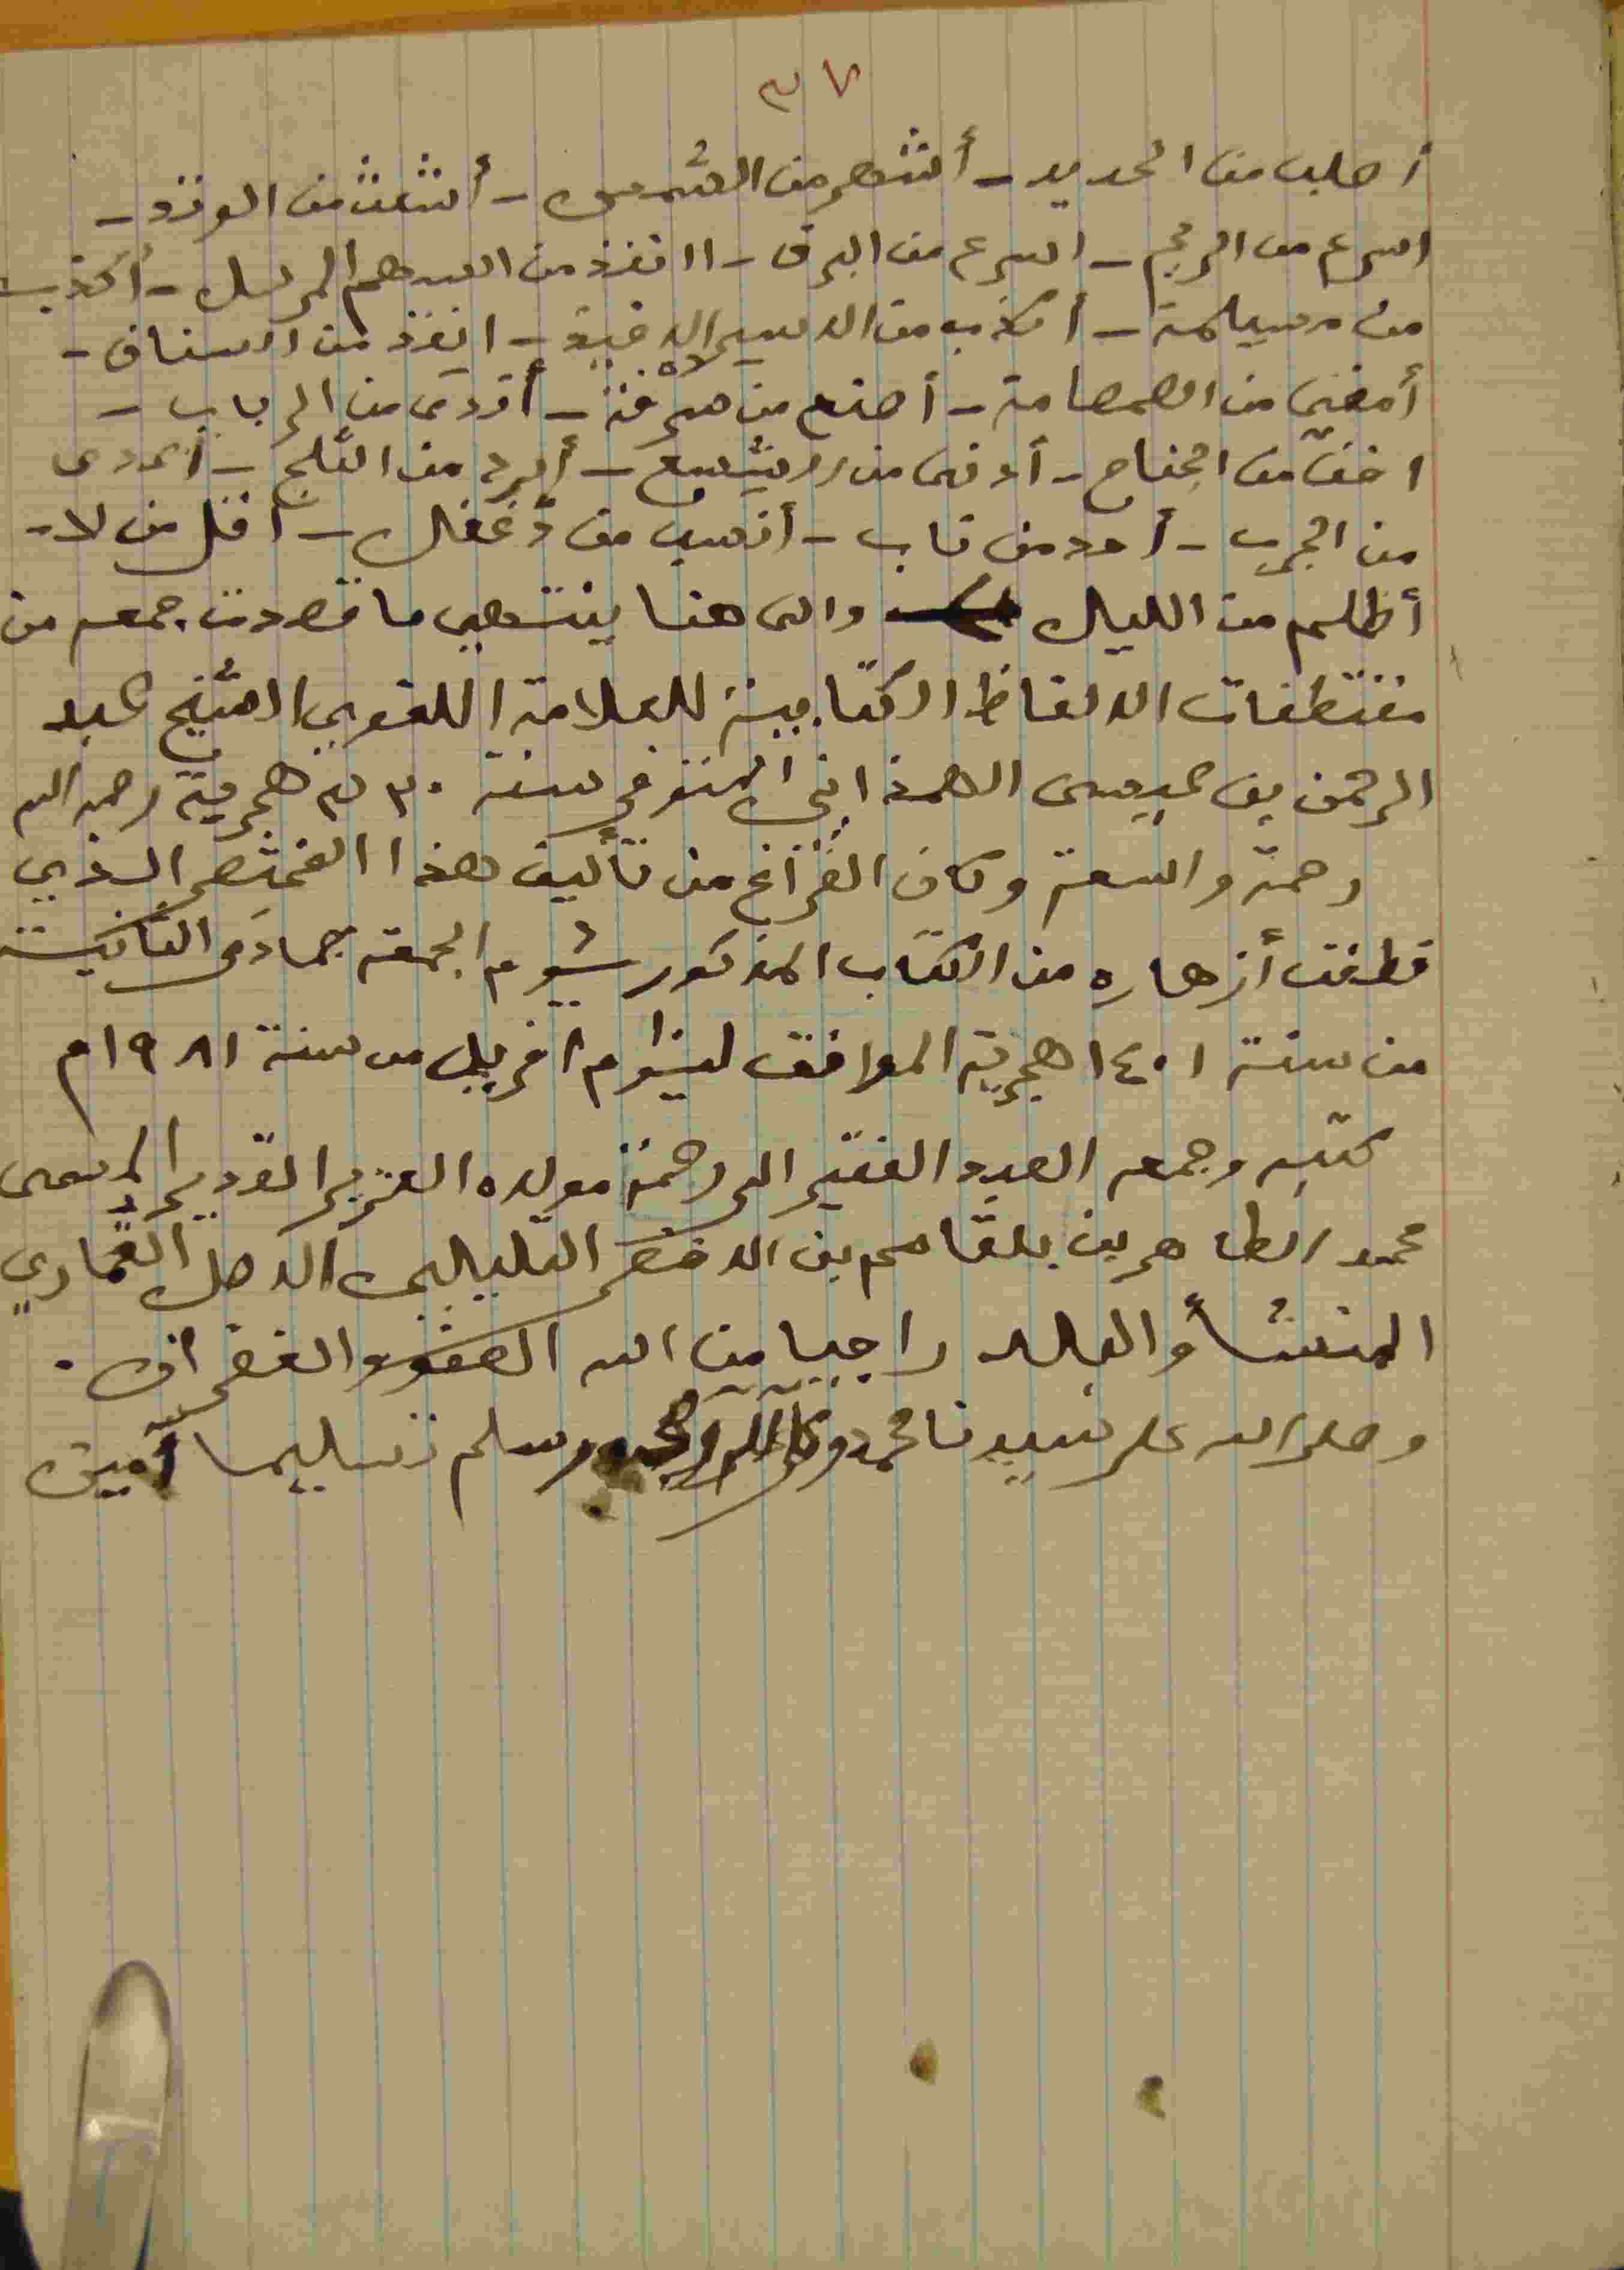 ٣٧
أصلب من الحديد - أشهر من الشمس - أشعث من الوتد -
اسرع من الريح - اسرع من البرق - انفذ من السهم المرسل - أكذب
من مسيلمة - أكذب من الاسير - انفذ من السنان -
أمضى من الصمصامة - أصنع من سرفة - أ من الرباب -
اخف من الجناح - أدنى من الشسع - أبرد من الثلج - أعدى
من الجرب - أحد من ناب - أنسب من دغفل - أقل من لا -
أظلم من الليل والى هنا ينتهي ما قصدت جمعه من
مقتطفات الالفاظ الكتابية للعلامة اللغوي الشيخ عبد
الرحمن بن عيسى الهمذاني المتوفى سنة ٣٢٠ هجرية رحمه الله
رحمة واسعة وكان الفراغ من تأليف هذا المختصر الذي
قطفت أزهاره من الكتاب المذكور يوم الجمعة جمادى الثانية
من سنة ١٤٠١ هجرية الموافق ليوم افريل من سنة ١٩٨١م
كتبه وجمعه العبد الفقير الى رحمة مولاه العزيز القدير المسمى
محمد الطاهر بن بلقاسم بن الاخضر التليلي الاصل القماري
المنشأ والبلد راجيا من الله العفو والغفران .
وصلى الله على سيدنا محمد وعلى آله وصحبه وسلم تسليما آمين